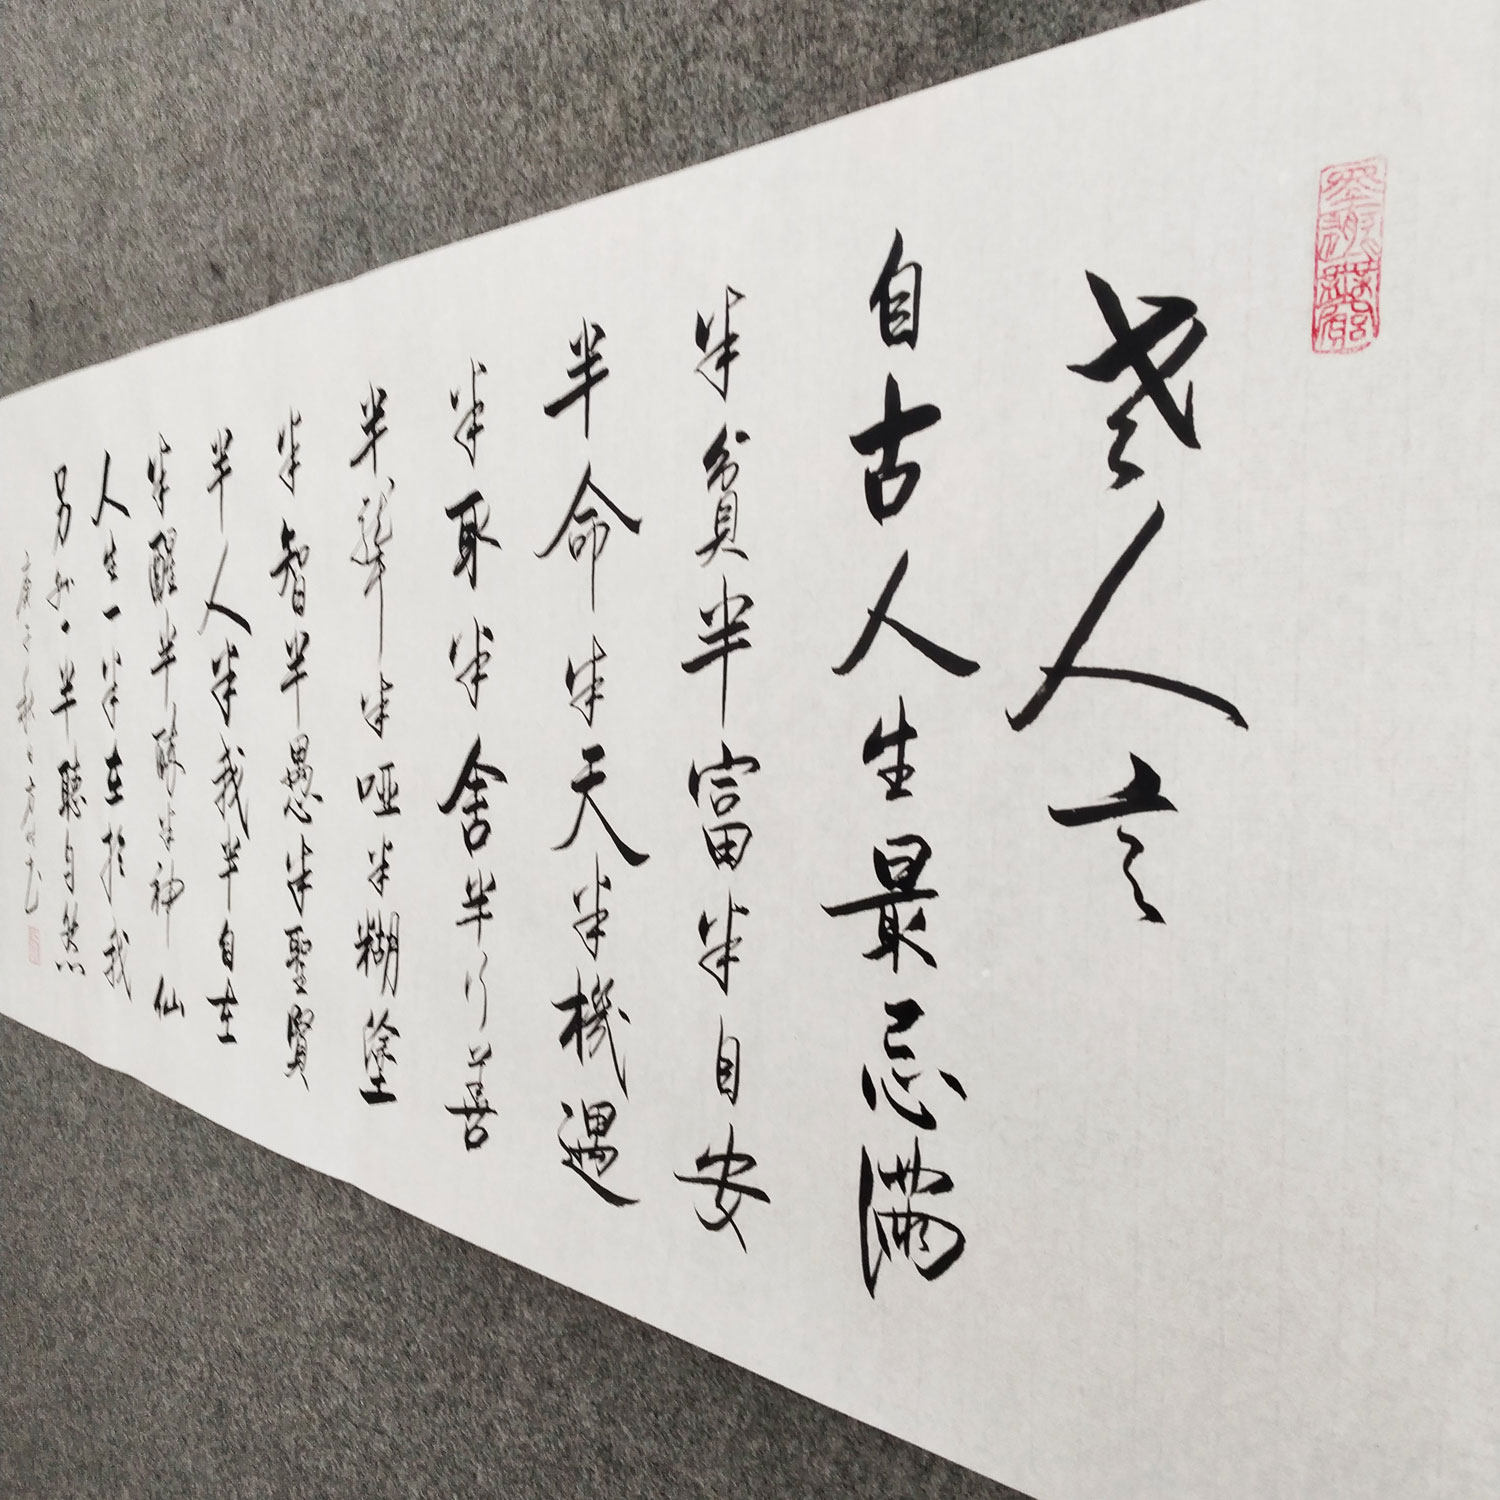 老人言
自古人生最忌滿
半貧半富半自安
半命半天半機遇
半取半舍半行善
半聾半啞半糊塗
半智半愚半聖賢
半人半我半自在
半醒半醉半神仙
人生一半在於我
另外一半聽自然
庚子秋月